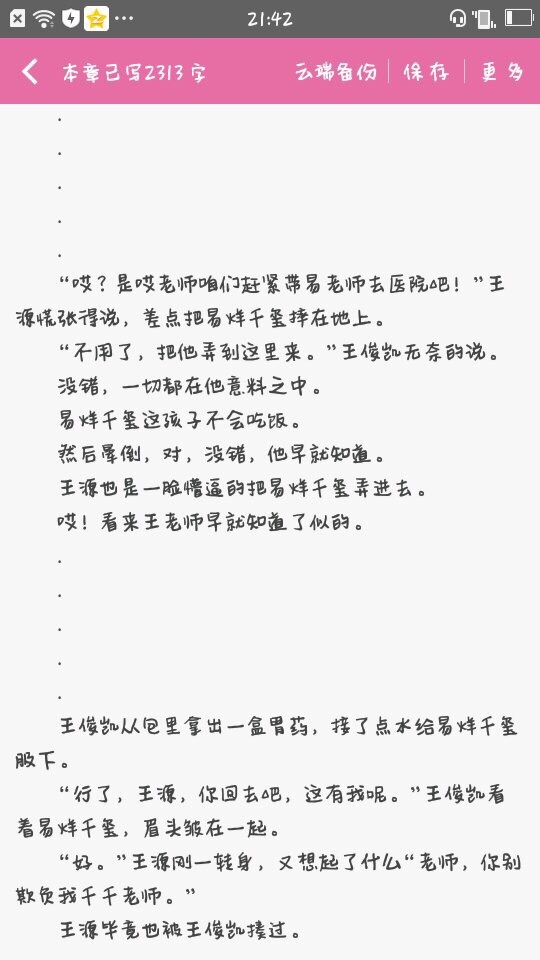 21:42
本章已写2313字
云端备份
保存
更多
.
.
.
.
.
“哎?是哎老师咱们赶紧带易老师去医院吧!”王
源慌张得说,差点把易烊千玺摔在地上。
“不用了,把他弄到这里来。”王俊凯无奈的说。
没错,一切都在他意料之中。
易烊千玺这孩子不会吃饭。
然后晕倒,对,没错,他早就知道。
王源也是一脸懵逼的把易烊千玺弄进去。
哎!看来王老师早就知道了似的。
.
.
.
.
.
王俊凯从包里拿出一盒胃药,接了点水给易烊千玺
服下。
“行了,王源,你回去吧,这有我呢。”王俊凯看
着易烊千玺,眉头皱在一起。
“好。”王源刚一转身,又想起了什么“老师,你别
欺负我千千老师。”
王源毕竟也被王俊凯揍过。